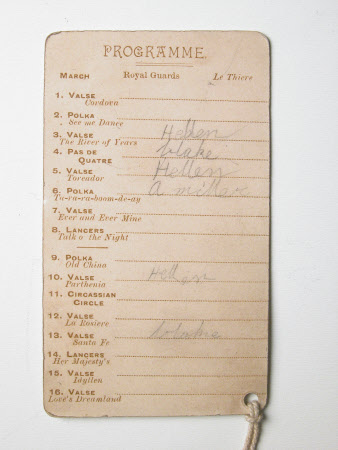 PROGRAMME.
MARCH Royal Guards Le Thiere
1. VALSE
Cordova
2. POLKA
See me Dance
3. VALSE Hellen
The River of Years
4. PAS DE QUATRE blake
5. VALSE Hellen
Toreador
6. POLKA A miller
Ta-ra-ra-boom-de-ay
7. VALSE
Ever and Ever Mine
8. LANCERS
Talk o the Night
9. POLKA
Old China
10. VALSE Hellen
Parthenia
11. CIRCASSIAN CIRCLE
12. VALSE
La Rosiere
13. VALSE
Santa Fe
14. LANCERS
Her Majesty's
15. VALSE
Idyllen
16. VALSE
Love's Dreamland